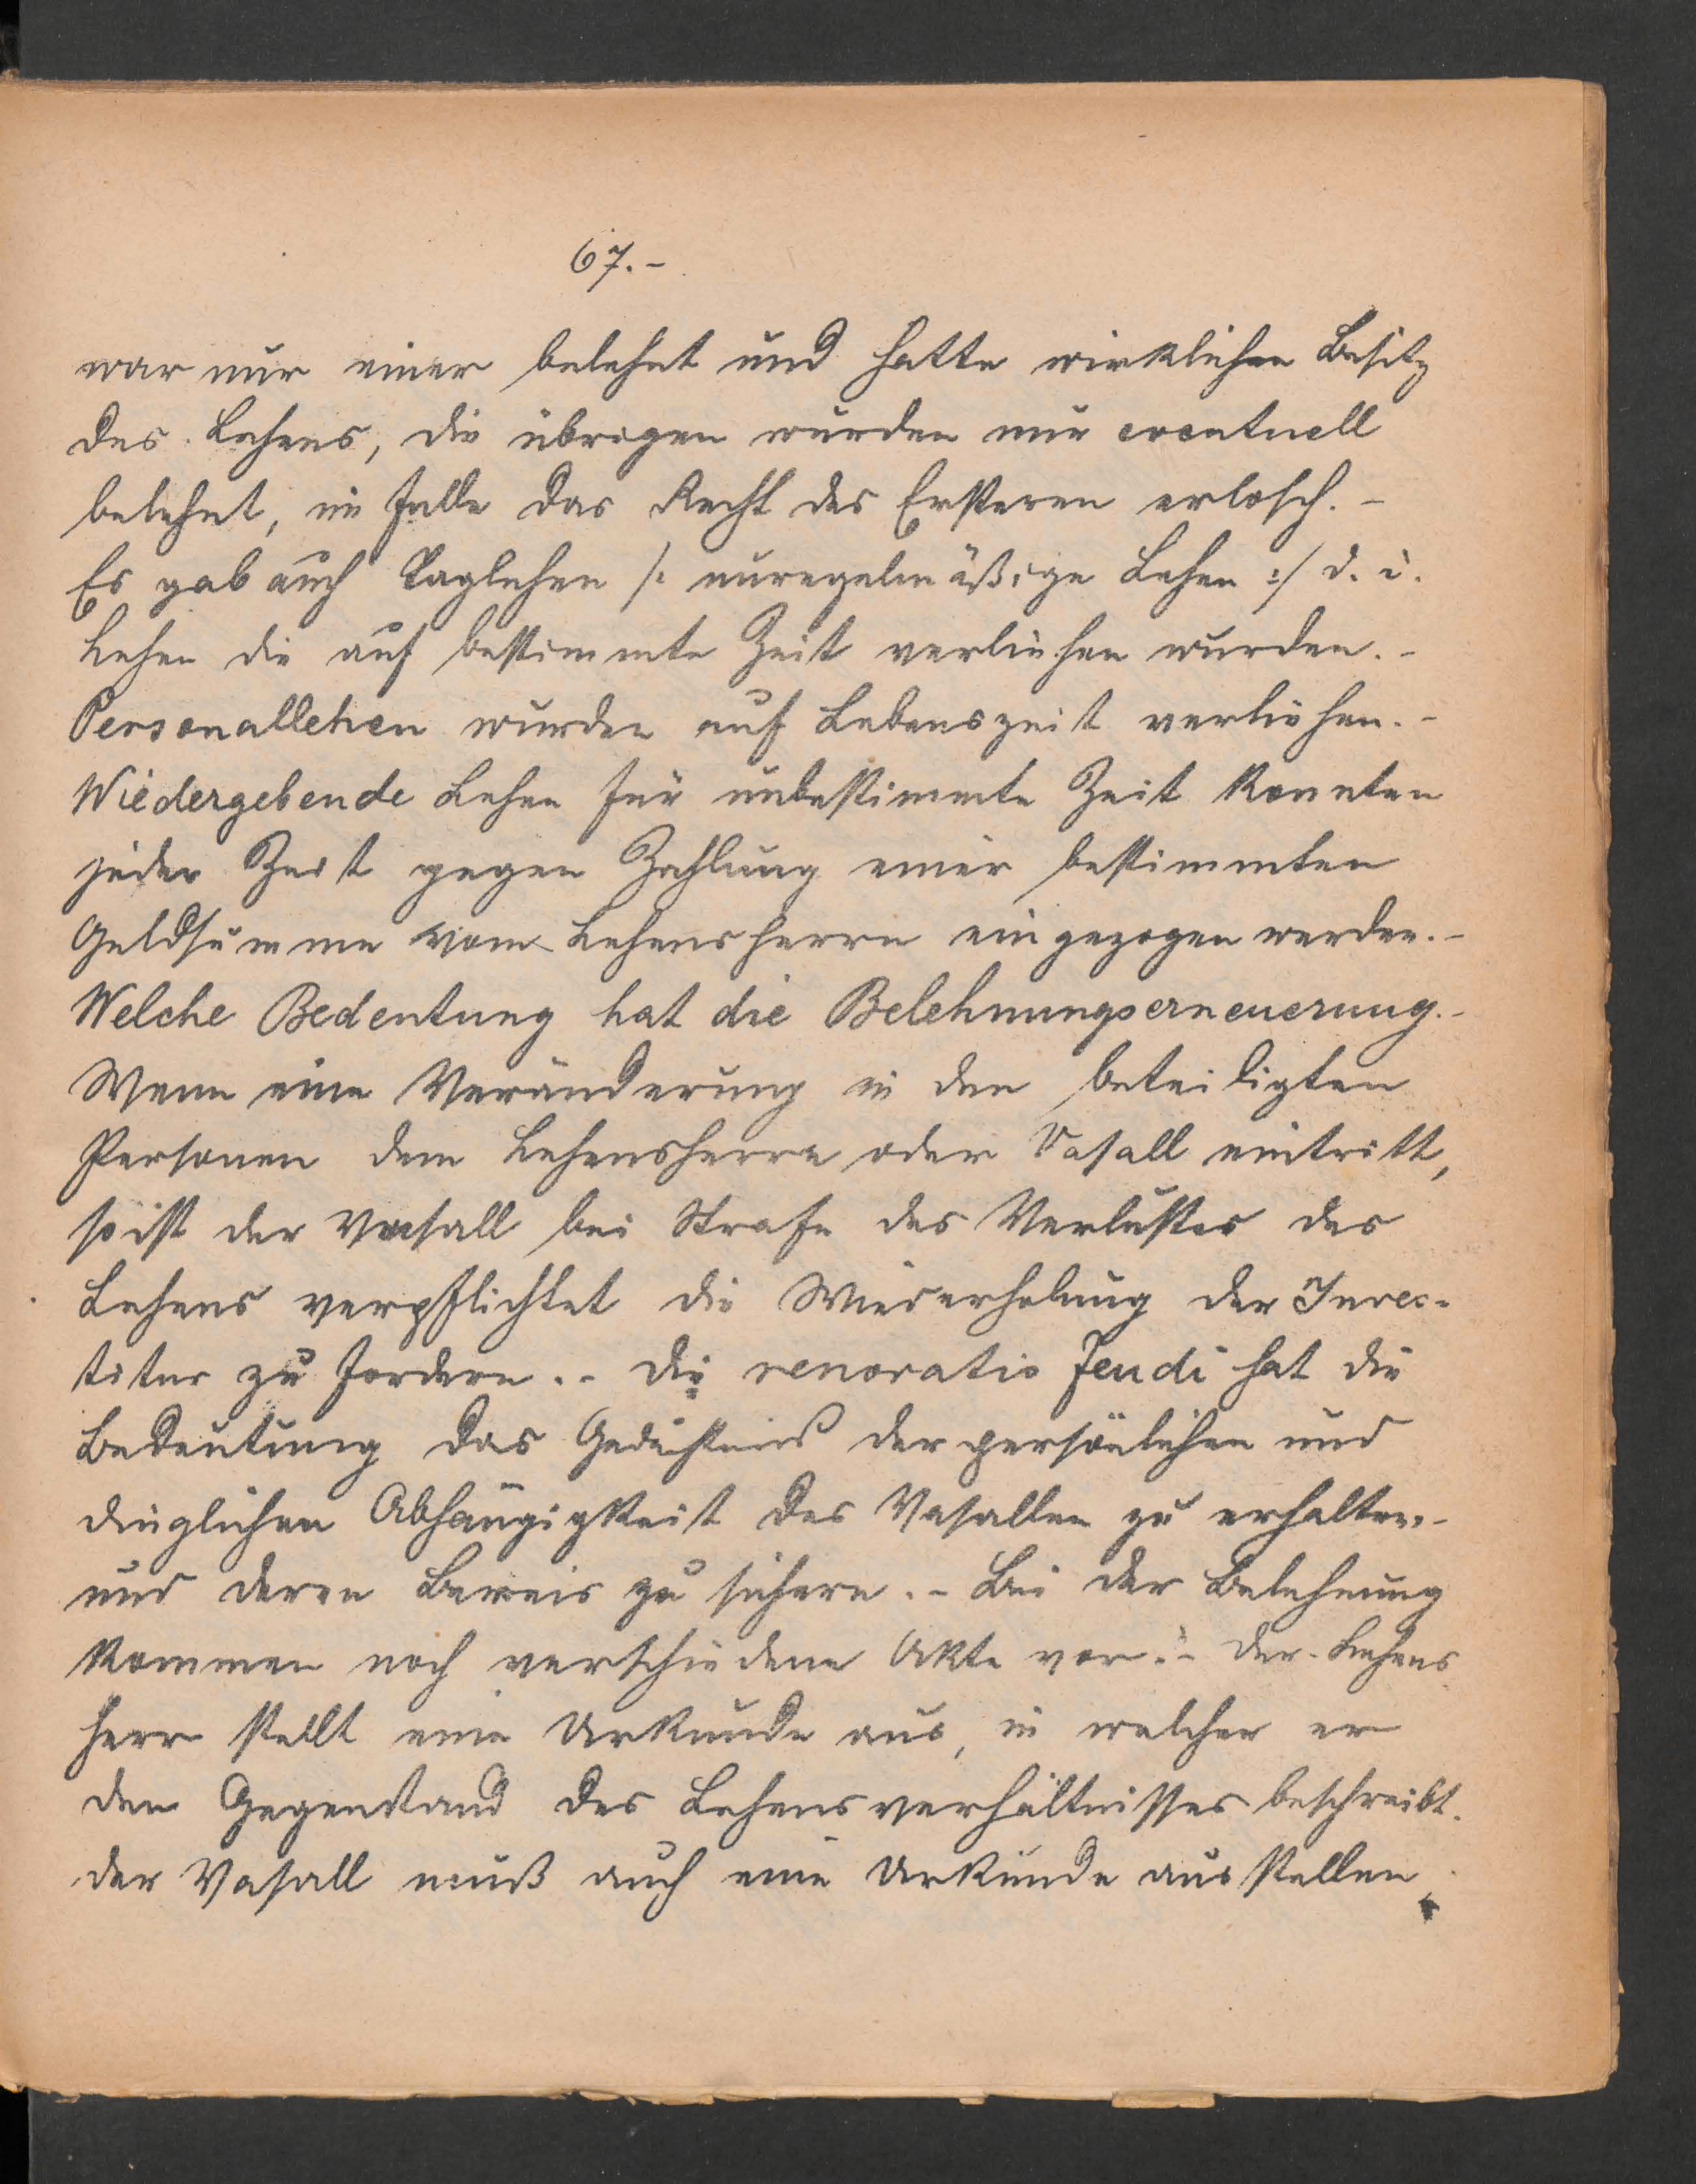 67.-
war nur einer belehnt und hatte wirklichen Besitz
des Lehens, die übrigen wurden nur eventuell
belehnt, im Falle das Recht des Ersteren erlosch. -
Es gab auch Taglehen /: unregelmäßige Lehen :/ d. i.
Lehen die auf bestimmte Zeit verliehen wurden. -
Personallehen wurden auf Lebenszeit verliehen. -
Wiedergebende Lehen für unbestimmte Zeit konnten
jeder Zeit gegen Zahlung einer bestimmten
Geldsumme vom Lehensherrn eingezogen werden. -
Welche Bedeutung hat die Belehnungserneuerung. -
Wenn eine Veränderung in den beteiligten
Personen dem Lehensherrn oder Vasall eintritt,
so ist der Vasall bei Strafe des Verlustes des
Lehens verpflichtet die Wiederholung der Inves-
titur zu fordern. - Die renovatio feudi hat die
Bedeutung das Gedächtnis der persönlichen und
dinglichen Abhängigkeit des Vasallen zu erhalten -
und deren Beweis zu sichern. - Bei der Belehnung
kommen noch verschiedene Akte vor: - Der Lehens
herr stellt eine Urkunde aus, in welcher er
den Gegenstand des Lehensverhältnisses beschreibt.
der Vasall muß auch eine Urkunde ausstellen,